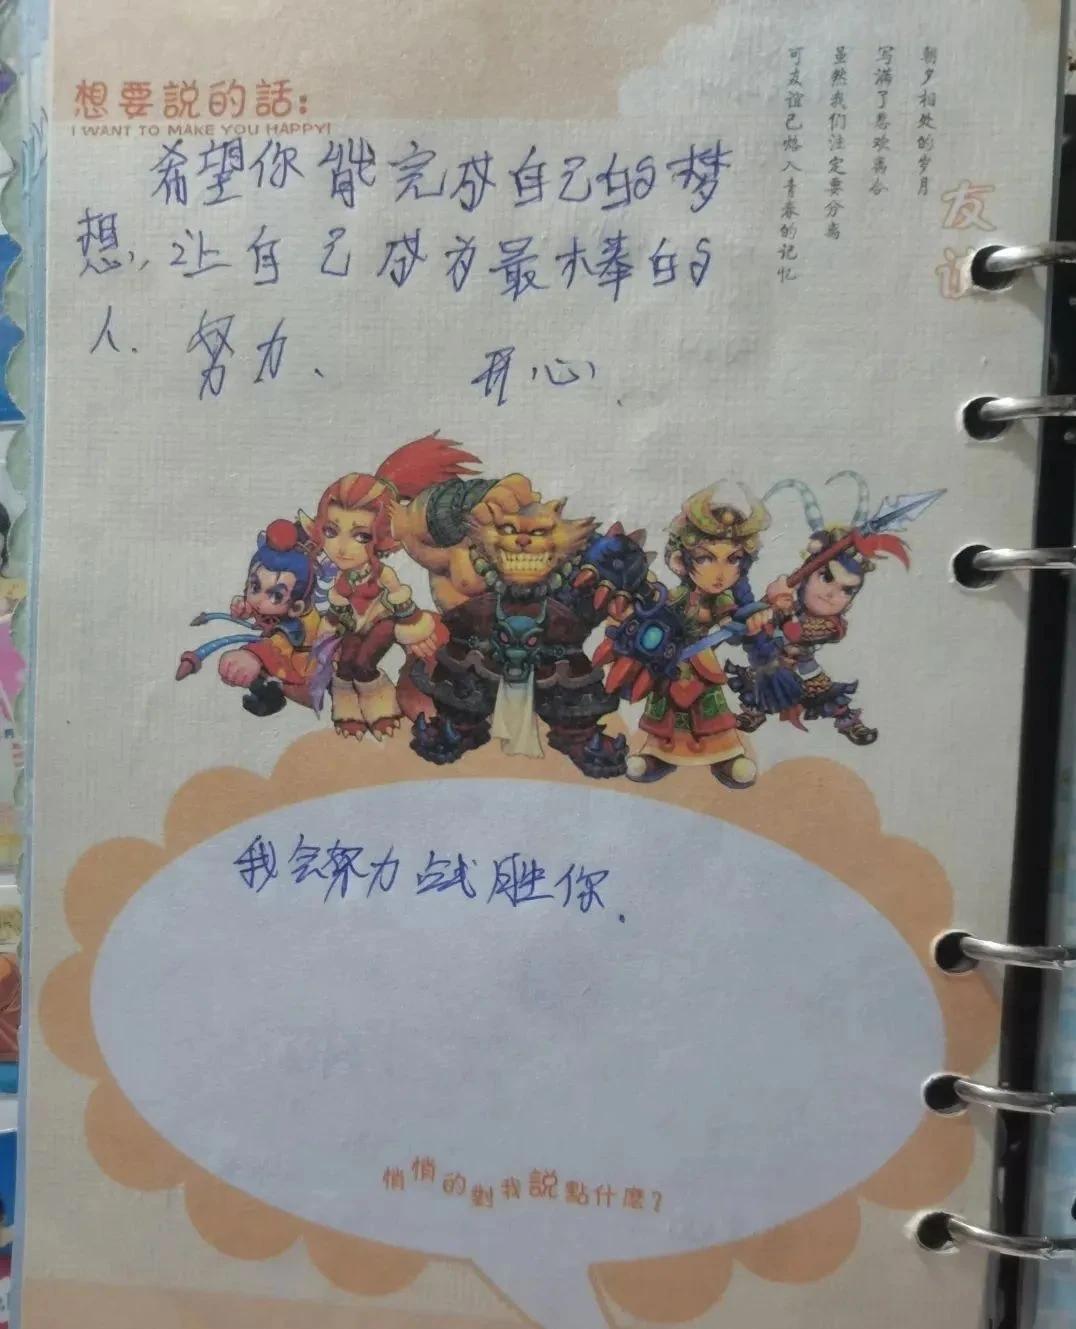 想要説的話：
I WANT TO MAKE YOU HAPPY!
希望你能完成自己的梦
想，让自己成为最棒的
人．努力． 开心．
友谊
朝夕相处的岁月
写满了悲欢离合
虽然我们注定要分离
可友谊已烙入青春的记忆
我会努力战胜你．
悄悄的對我説點什麼？